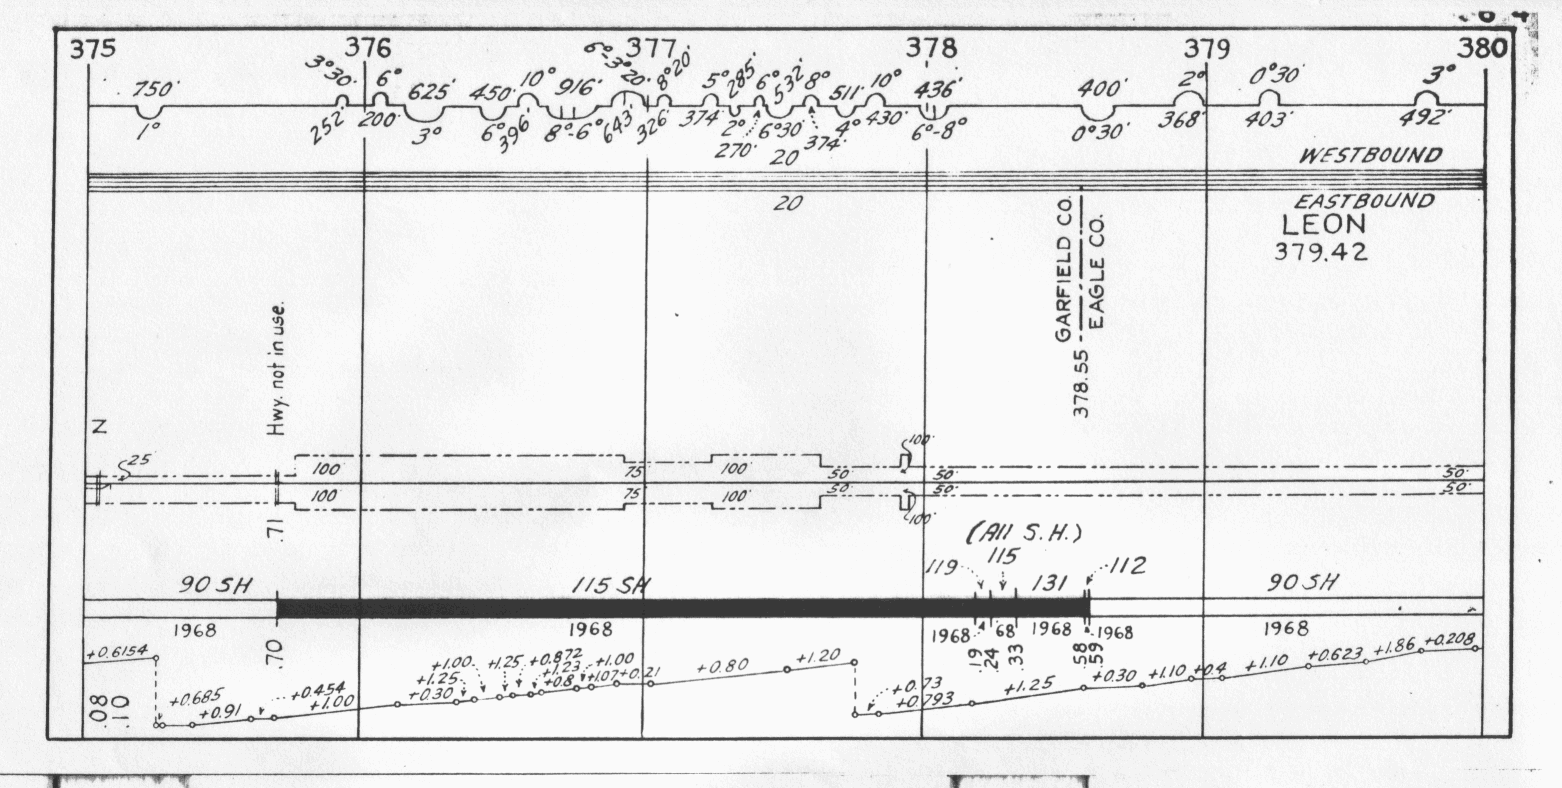 375 376 377 378 379 380
750' 3°30' 6° 625' 450' 10° 916' 6°-3°20' 8°20' 5° 285' 6° 532' 8° 511' 10° 436' 400' 2° 0°30' 3°
1° 252' 200' 3° 6° 396' 8°-6° 643' 326' 374' 2° 6°30' 4° 430' 6°-8° 0°30' 368' 403' 492'
270' 20 374'
WESTBOUND
20
EASTBOUND
LEON
379.42
GARFIELD CO.
EAGLE CO.
378.55
Hwy. not in use.
N
25
100' 75' 100' 50' 100' 50' 50'
100' 75' 100' 50' 100' 50' 50'
.71
(All S.H.)
119 115 131 112
90 SH 115 SH 90 SH
1968 1968 1968 '68 1968 1968 1968
.70 .19 .24 .33 .58 .59
+0.6154 +1.00 +1.25 +0.872 +1.00
+1.25 +1.23
+0.685 +0.454 +0.30 +0.8 +1.07 +0.21 +0.80 +1.20 +0.73 +1.25 +0.30 +1.10 +0.4 +1.10 +0.623 +1.86 +0.208
+0.91 +1.00 +0.793
.08
.10